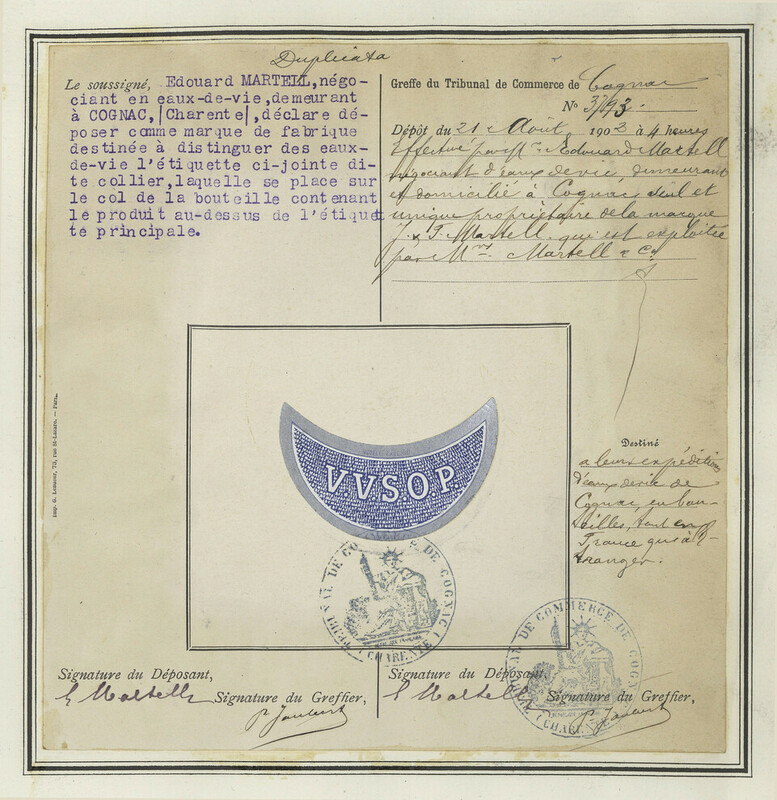 Duplicata
Le soussigné, Edouard MARTELL,négo-
ciant en eaux-de-vie,demeurant
à COGNAC,/Charente/,déclare dé-
poser comme marque de fabrique
destinée à distinguer des eaux-
de-vie l'étiquette ci-jointe di-
te collier,laquelle se place sur
le col de la bouteille contenant
le produit au-dessus de l'étiquet
te principale.
Greffe du Tribunal de Commerce de Cognac
No 3793.
Dépôt du 21 Août 1903 à 4 heures
Effectué par Mr. Edouard Martell
négociant d'eaux de vie, demeurant
et domicilié à Cognac seul et
unique propriétaire de la marque
J. & F. Martell, qui est exploitée
par Mrs. Martell & Co
V.VSOP
Destiné
a leurs expéditions
d'eaux de vie de
Cognac, en bou-
teilles, tant en
France qu'à l'é-
tranger.
Imp. G. Lemaout, 73, rue St-Lazare. — Paris.
TRIBUNAL DE COMMERCE DE COGNAC
(CHARENTE)
TRIBUNAL DE COMMERCE DE COGNAC
(CHARENTE)
Signature du Déposant,
E Martell
Signature du Greffier,
Signature du Déposant,
E Martell
Signature du Greffier,